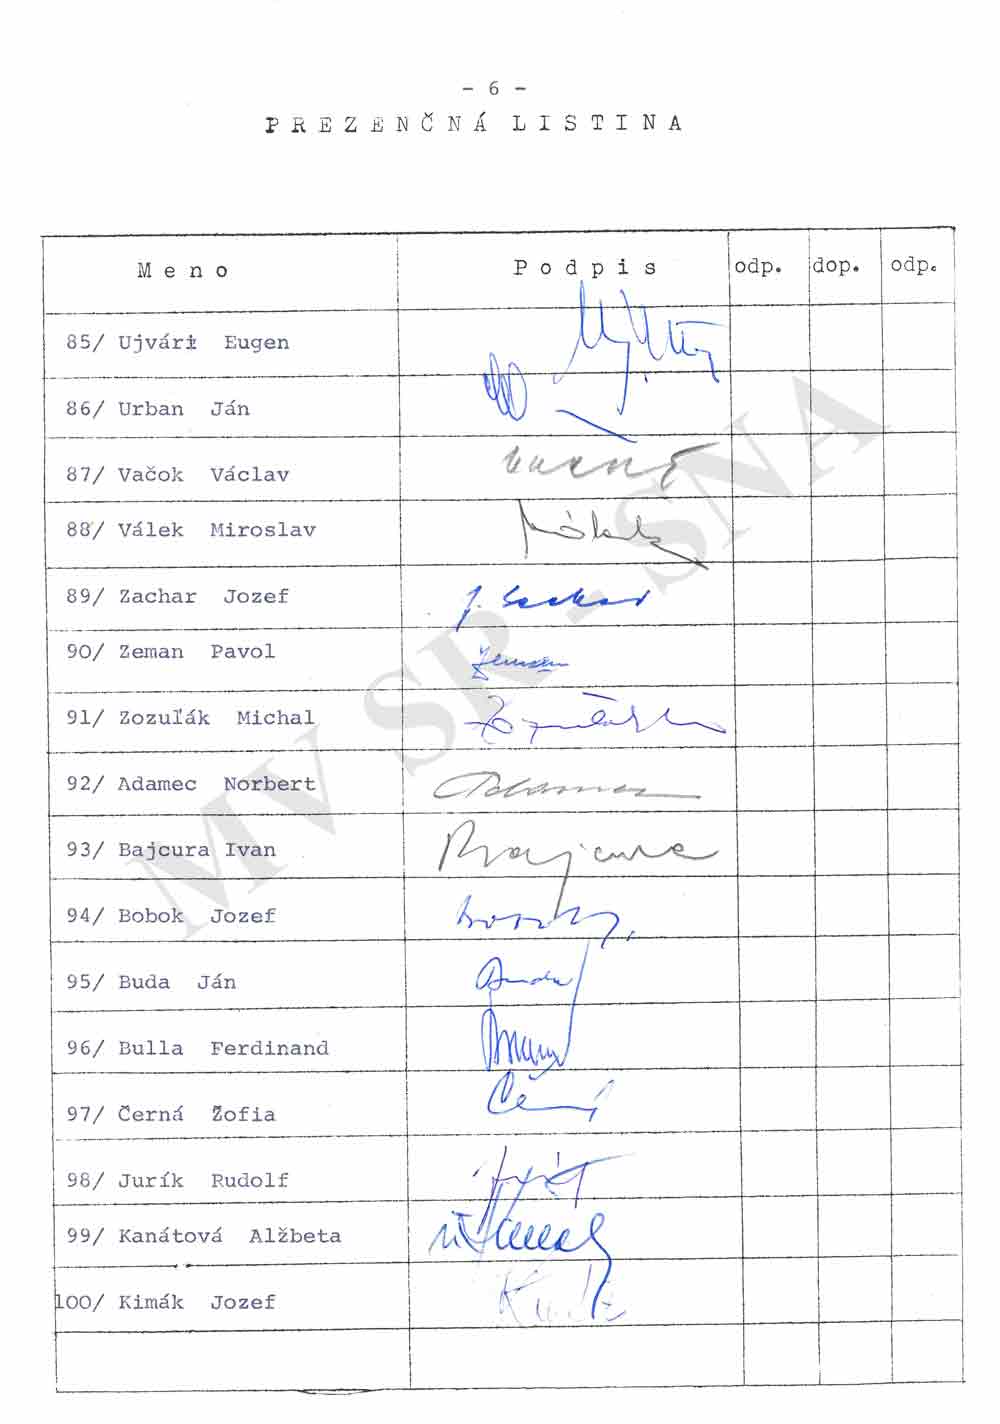 - 6 -
PREZENČNÁ LISTINA
Meno Podpis odp. dop. odp.
85/ Ujvári Eugen
86/ Urban Ján
87/ Vačok Václav
88/ Válek Miroslav
89/ Zachar Jozef J. Zachar
90/ Zeman Pavol Zeman
91/ Zozuľák Michal
92/ Adamec Norbert Adamec
93/ Bajcura Ivan Bajcura
94/ Bobok Jozef
95/ Buda Ján Buda
96/ Bulla Ferdinand
97/ Černá Žofia
98/ Jurík Rudolf
99/ Kanátová Alžbeta
100/ Kimák Jozef
MV SR - SNA